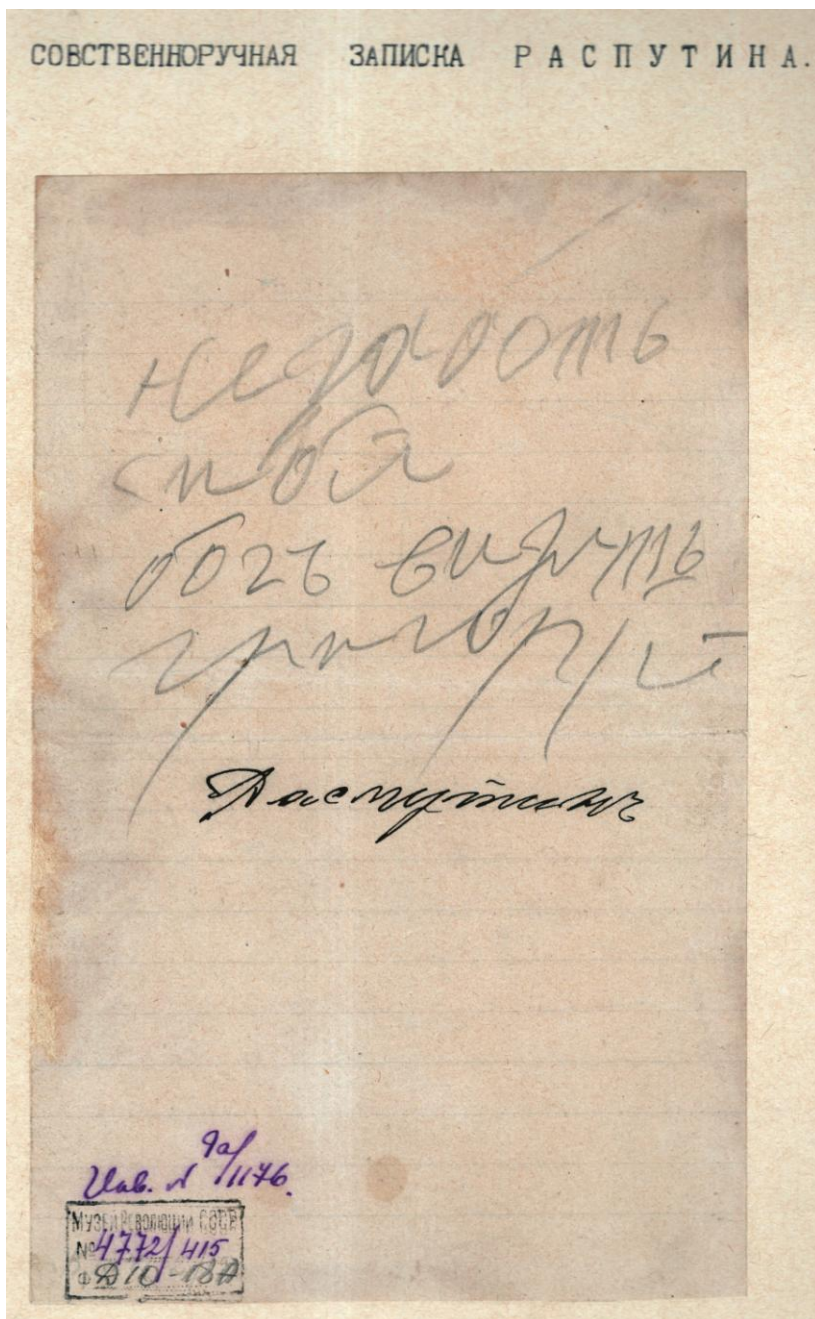 СОБСТВЕННОРУЧНАЯ ЗАПИСКА РАСПУТИНА.
богъ видитъ
григорий
Распутинъ
Инв. № 9а/1176.
МУЗЕЙ РЕВОЛЮЦИИ СССР
№ 4772/415
Ф Д10-18д